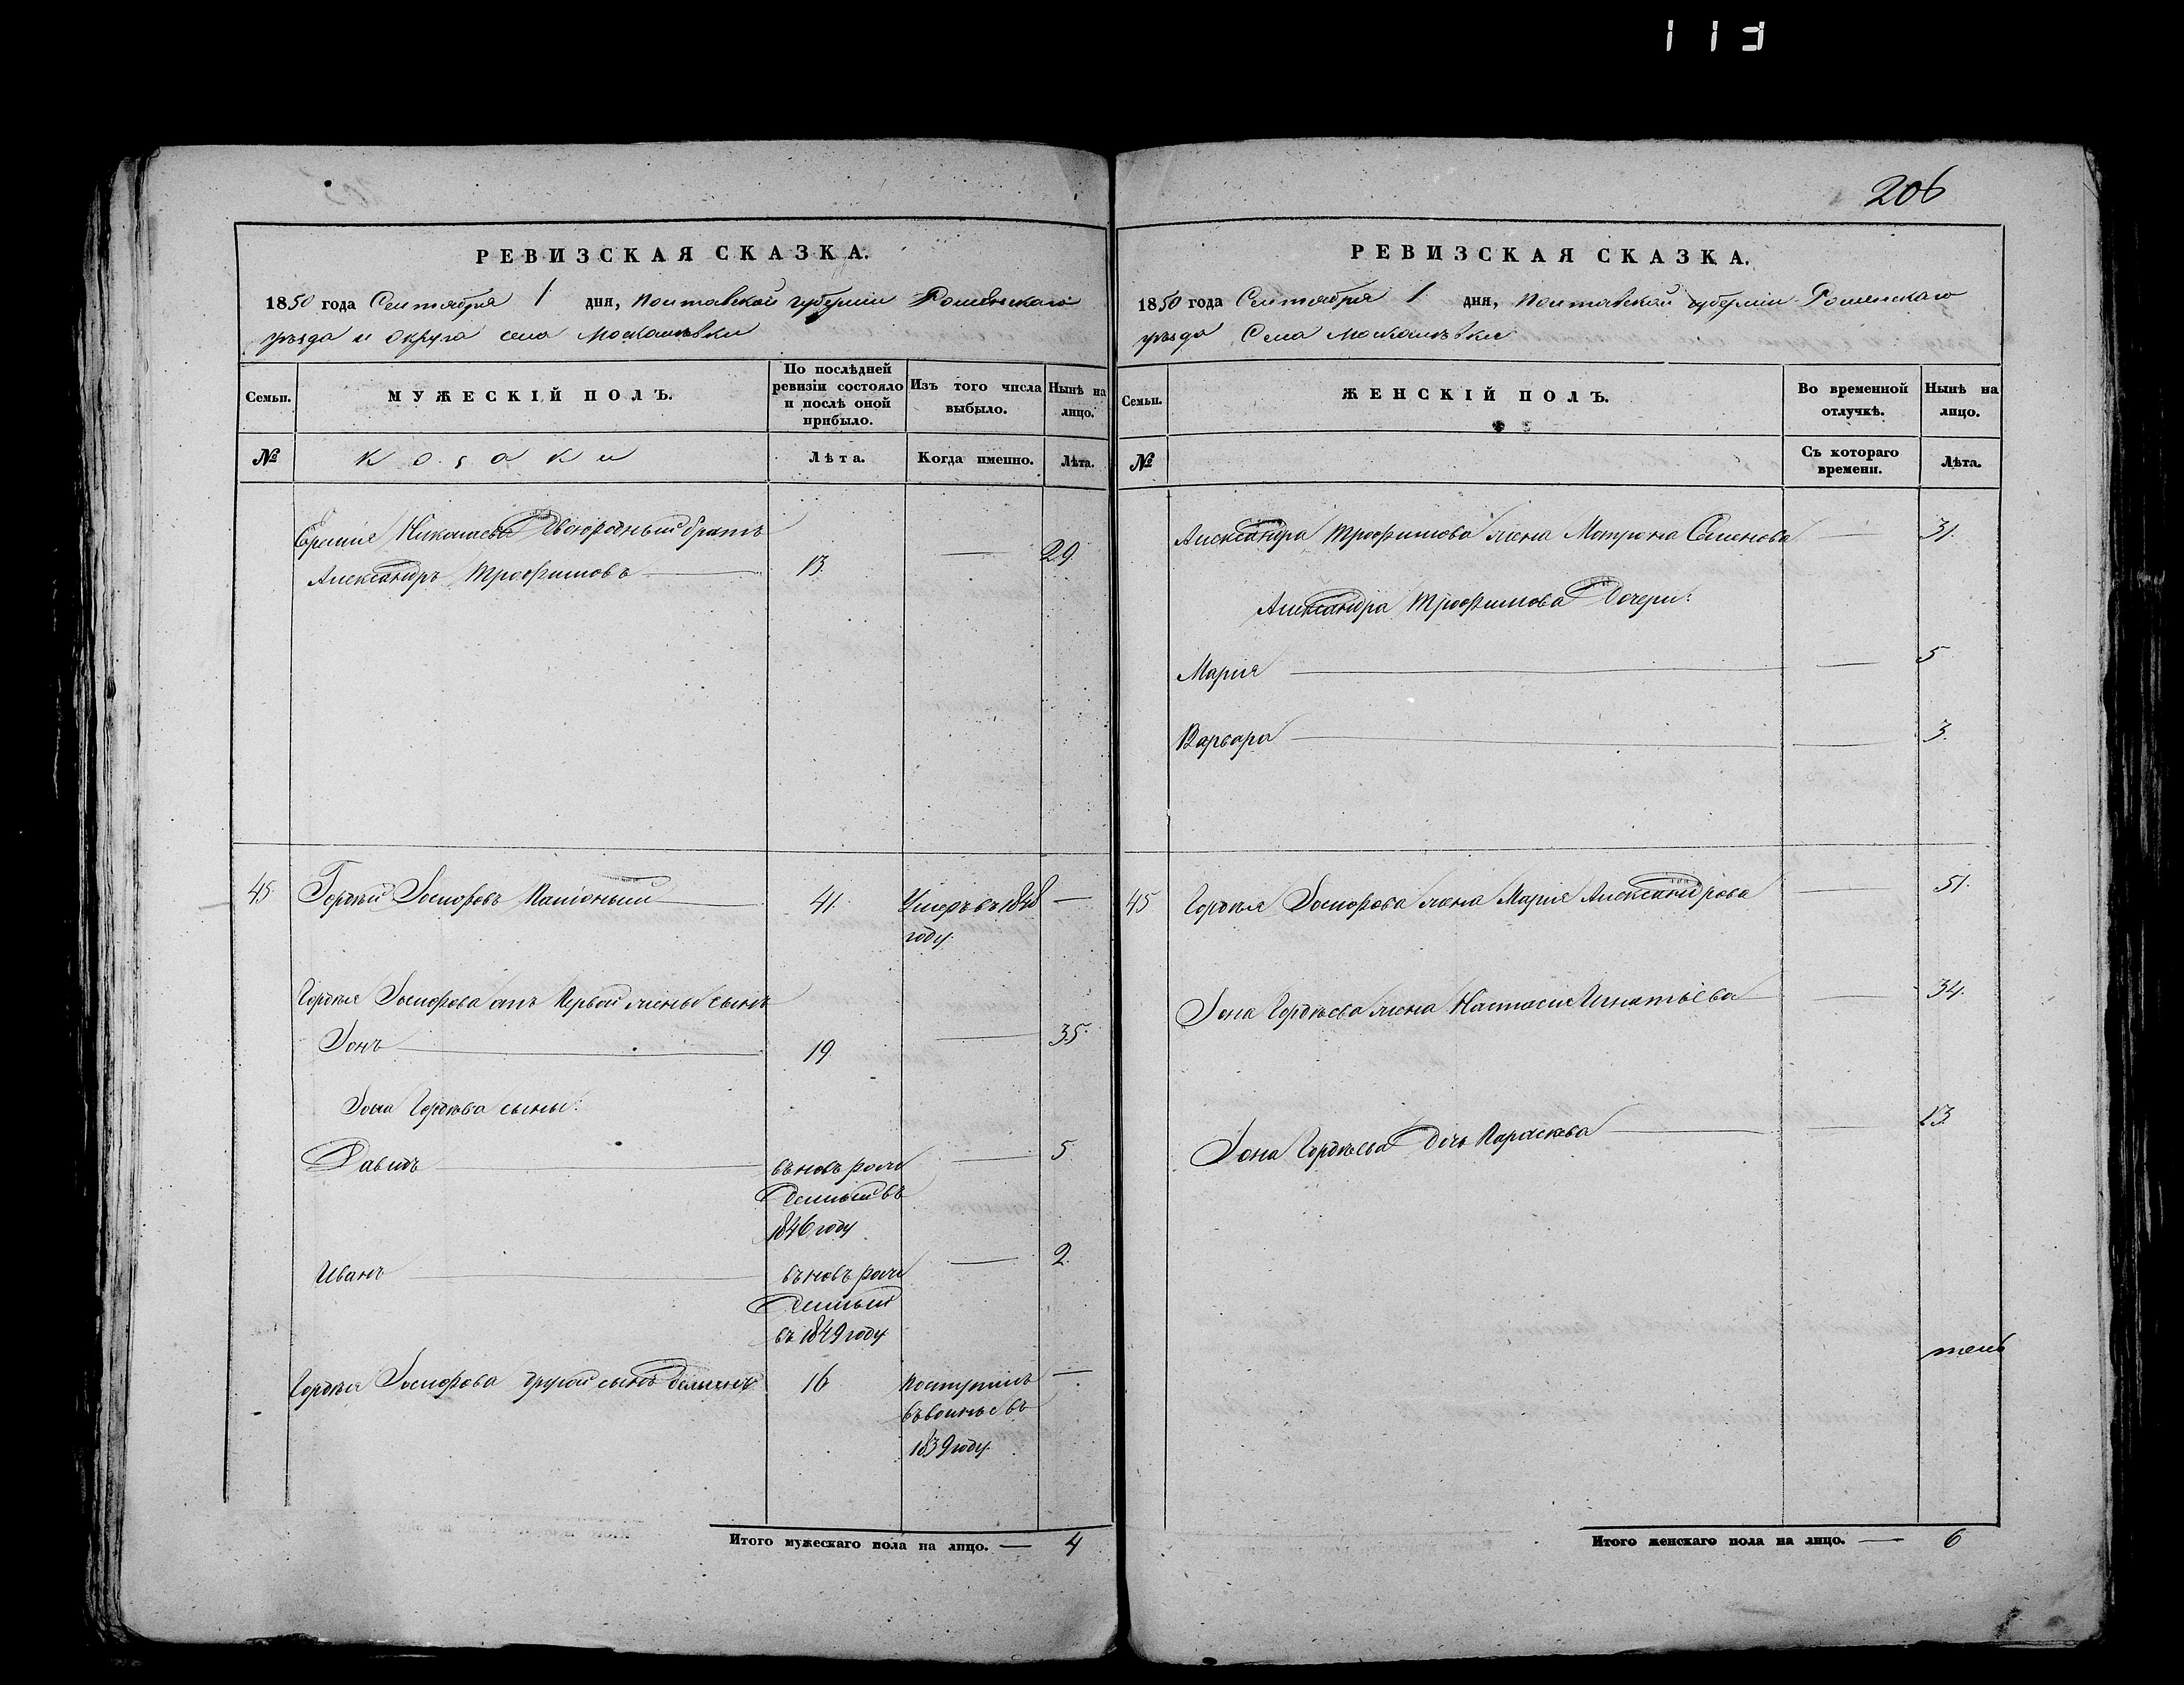 113
206
РЕВИЗСКАЯ СКАЗКА.
1850 года Сентября 1 дня, Полтавской губерніи Роменскаго
уѣзда и округа села Москалевки
Семьи.
МУЖЕСКІЙ ПОЛЪ.
По послѣдней ревизіи состояло и послѣ оной прибыло.
Изъ того числа выбыло.
Нынѣ на лицо.
№
козаки
Лѣта.
Когда именно.
Лѣта.
Николаева двоюродный братъ
Александръ Трофимовъ 13. 29.
45. Гордѣй Іосифовъ 41. Умеръ въ 1848 —
году.
Гордѣя Іосифова отъ первой жены сынъ
Іонъ 19 35.
Іона Гордѣева сыны:
Давидъ вьновь рож 5
денный въ
1846 году
Иванъ вьновь рож 2.
денный
въ 1849 году
Гордѣя Іосифова другой сынъ 16 поступилъ —
въ
1839 году.
Итого мужескаго пола на лицо. — 4
РЕВИЗСКАЯ СКАЗКА.
1850 года Сентября 1 дня, Полтавской губерніи Роменскаго
уѣзда Села Москалевки
Семьи.
ЖЕНСКІЙ ПОЛЪ.
Во временной отлучкѣ.
Нынѣ на лицо.
№
Съ котораго времени.
Лѣта.
Александра Трофимова жена Матрона Семенова — 31.
Александра Трофимова дочери:
Марія — 5
Варвара — 3.
45 Гордѣя Іосифова жена Марія Александрова — 51.
Іона Гордѣева жена Настасия Игнатьева — 34.
Іона Гордѣева дочь Параскева — 13.
Итого женскаго пола на лицо. — 6